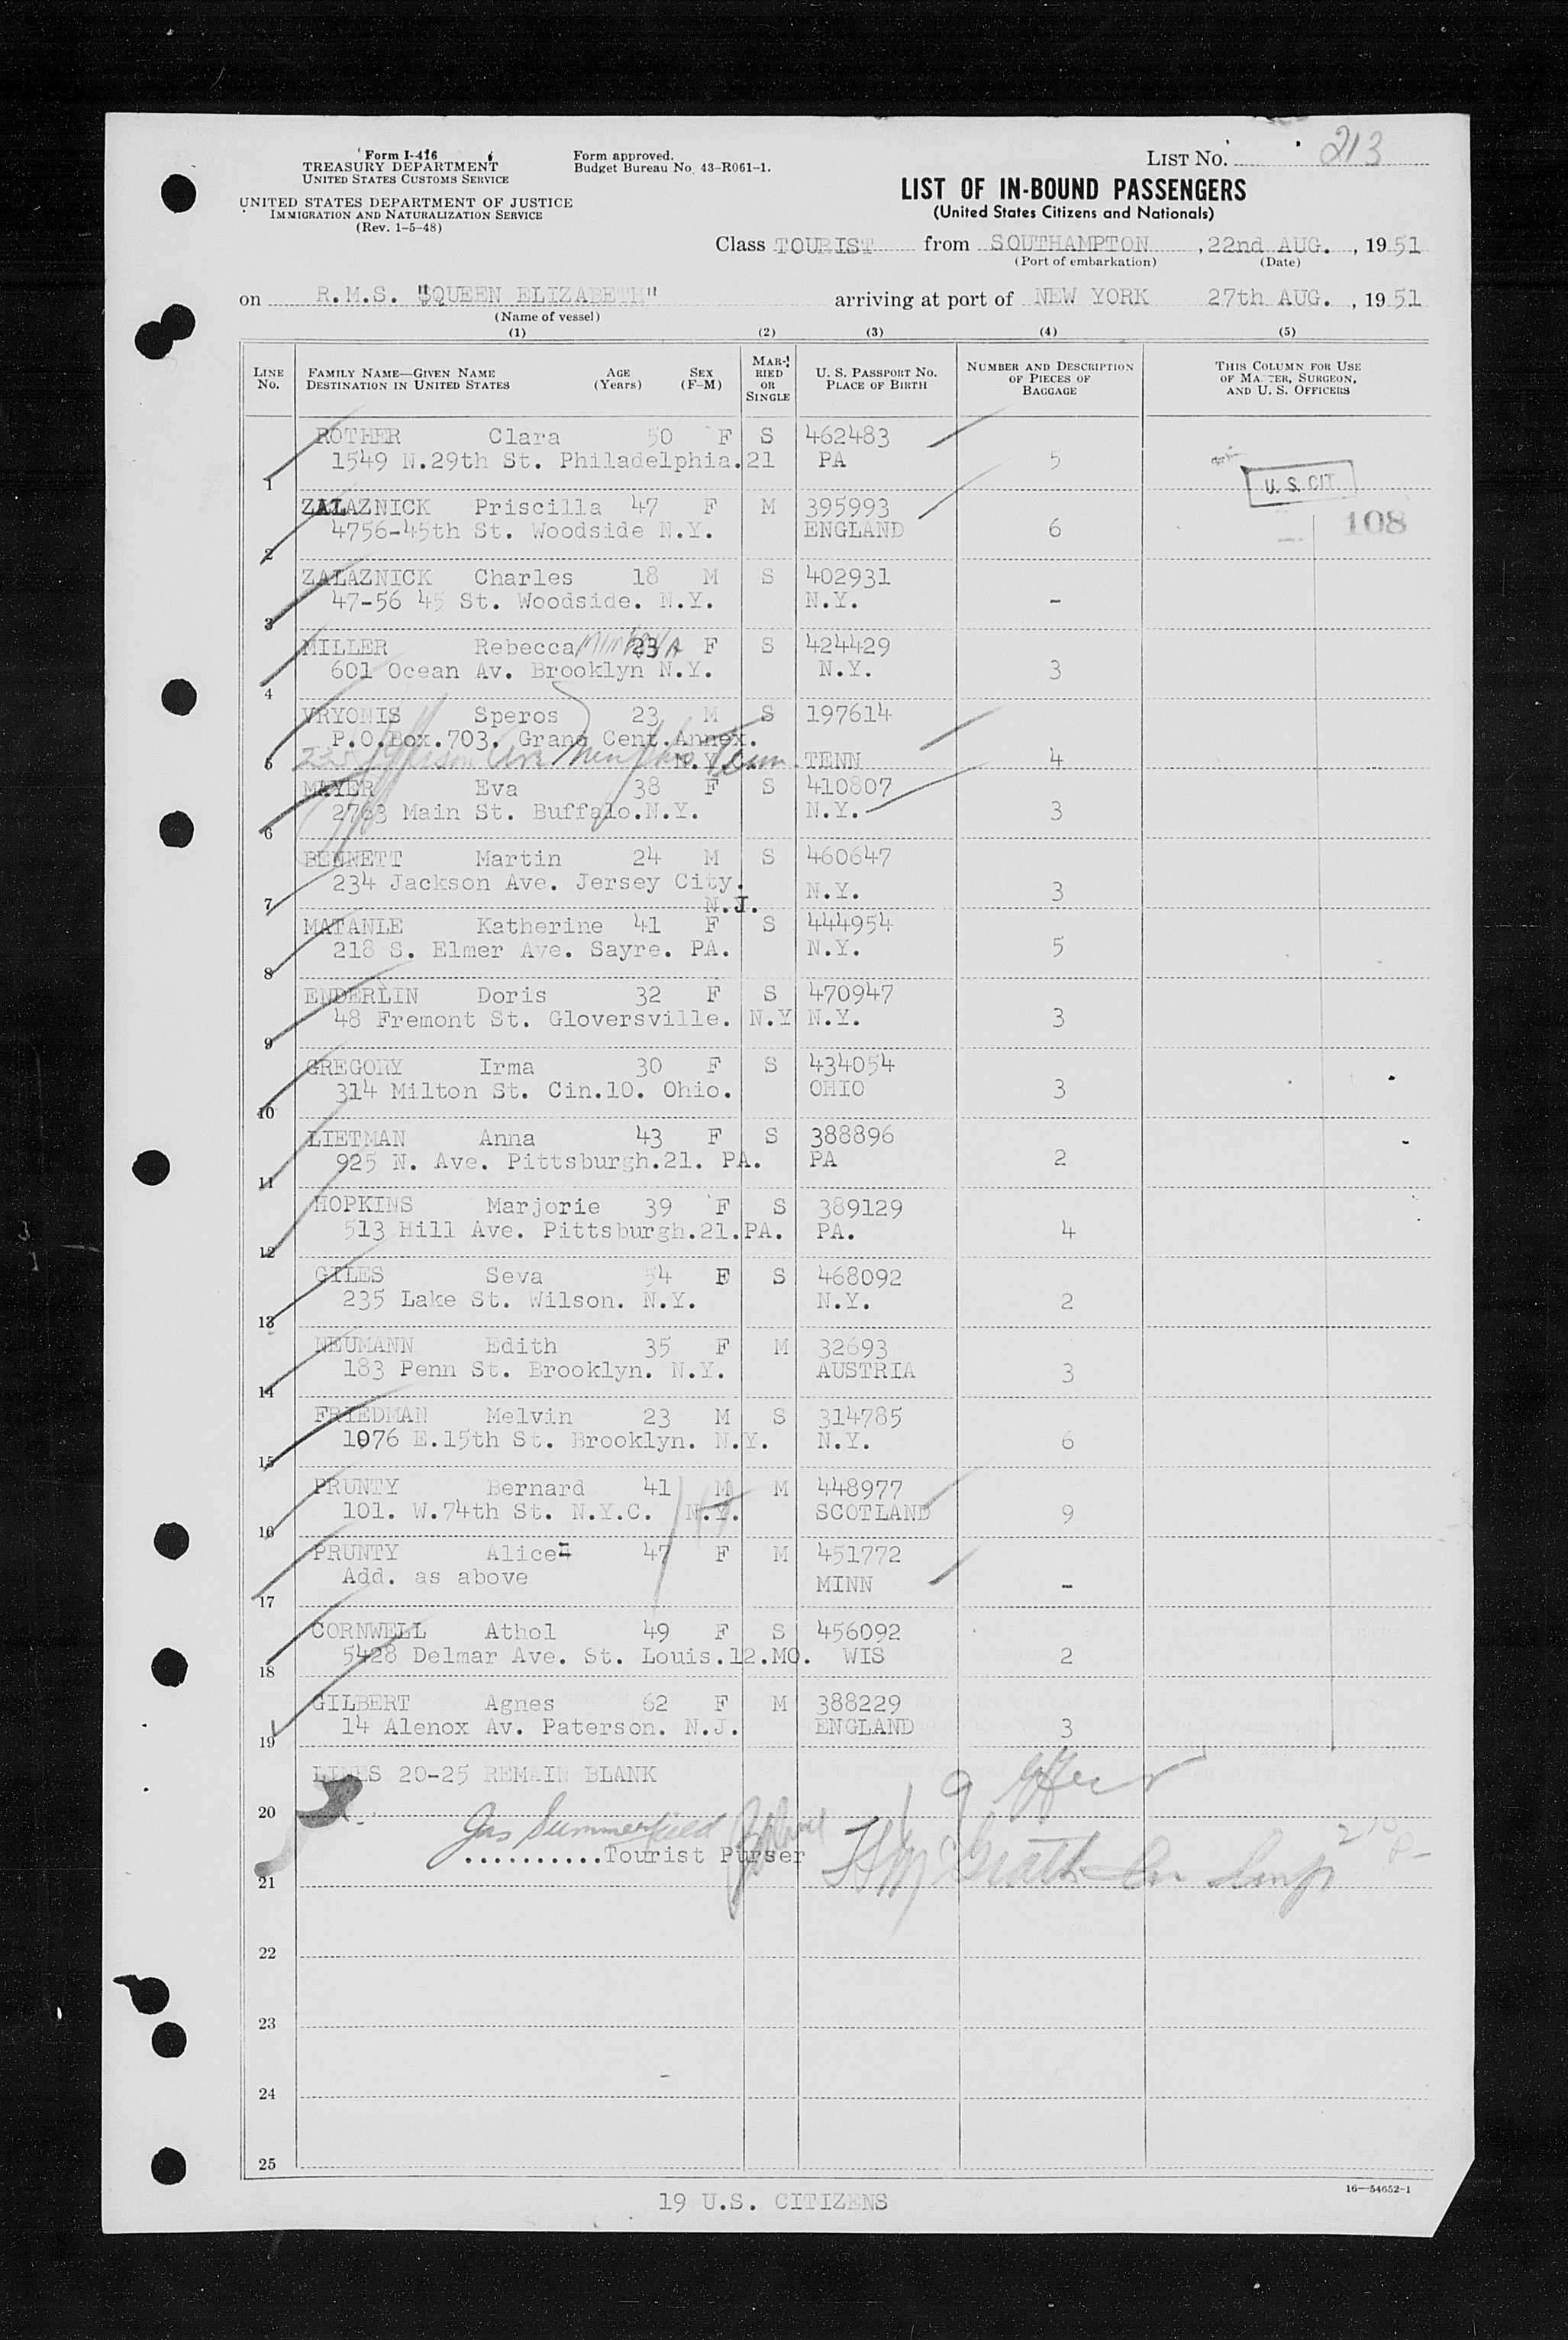 Form I-416
TREASURY DEPARTMENT
UNITED STATES CUSTOMS SERVICE
UNITED STATES DEPARTMENT OF JUSTICE
IMMIGRATION AND NATURALIZATION SERVICE
(Rev. 1-5-48)
Form approved.
Budget Bureau No. 43-R061-1.
LIST NO. 213
LIST OF IN-BOUND PASSENGERS
(United States Citizens and Nationals)
Class TOURIST from SOUTHAMPTON , 22nd AUG. , 1951
(Port of embarkation) (Date)
on R.M.S. "QUEEN ELIZABETH" arriving at port of NEW YORK 27th AUG. , 1951
(Name of vessel)
(1) (2) (3) (4) (5)
LINE No. FAMILY NAME—GIVEN NAME DESTINATION IN UNITED STATES AGE (Years) SEX (F-M) MARRIED OR SINGLE U. S. PASSPORT NO. PLACE OF BIRTH NUMBER AND DESCRIPTION OF PIECES OF BAGGAGE THIS COLUMN FOR USE OF MASTER, SURGEON, AND U. S. OFFICERS
ROTHER Clara 50 F S 462483
1 1549 N.29th St. Philadelphia.21 PA 5
U. S. CIT.
ZALAZNICK Priscilla 47 F M 395993
2 4756-45th St. Woodside N.Y. ENGLAND 6 108
ZALAZNICK Charles 18 M S 402931
3 47-56 45 St. Woodside. N.Y. N.Y. -
MILLER Rebecca 23 F S 424429
4 601 Ocean Av. Brooklyn N.Y. N.Y. 3
VRYONIS Speros 23 M S 197614
P.O.Box.703. Grand Cent.Annex.
5 235 Jefferson Ave Memphis Tenn. N.Y. TENN 4
MAYER Eva 38 F S 410807
6 2763 Main St. Buffalo.N.Y. N.Y. 3
BENNETT Martin 24 M S 460647
7 234 Jackson Ave. Jersey City. N.J. N.Y. 3
MATANLE Katherine 41 F S 444954
8 218 S. Elmer Ave. Sayre. PA. N.Y. 5
ENDERLIN Doris 32 F S 470947
9 48 Fremont St. Gloversville. N.Y N.Y. 3
GREGORY Irma 30 F S 434054
10 314 Milton St. Cin.10. Ohio. OHIO 3
LIETMAN Anna 43 F S 388896
11 925 N. Ave. Pittsburgh.21. PA. PA 2
HOPKINS Marjorie 39 F S 389129
12 513 Hill Ave. Pittsburgh.21.PA. PA. 4
GILES Seva 54 F S 468092
13 235 Lake St. Wilson. N.Y. N.Y. 2
NEUMANN Edith 35 F M 32693
14 183 Penn St. Brooklyn. N.Y. AUSTRIA 3
FRIEDMAN Melvin 23 M S 314785
15 1076 E.15th St. Brooklyn. N.Y. N.Y. 6
PRUNTY Bernard 41 M M 448977
16 101. W.74th St. N.Y.C. N.Y. SCOTLAND 9
PRUNTY Alice 47 F M 451772
17 Add. as above MINN -
CORNWELL Athol 49 F S 456092
18 5428 Delmar Ave. St. Louis.12.MO. WIS 2
GILBERT Agnes 62 F M 388229
19 14 Alenox Av. Paterson. N.J. ENGLAND 3
LINES 20-25 REMAIN BLANK
20
Jas Summerfield
..........Tourist Purser
21
22
23
24
25
16—54652-1
19 U.S. CITIZENS